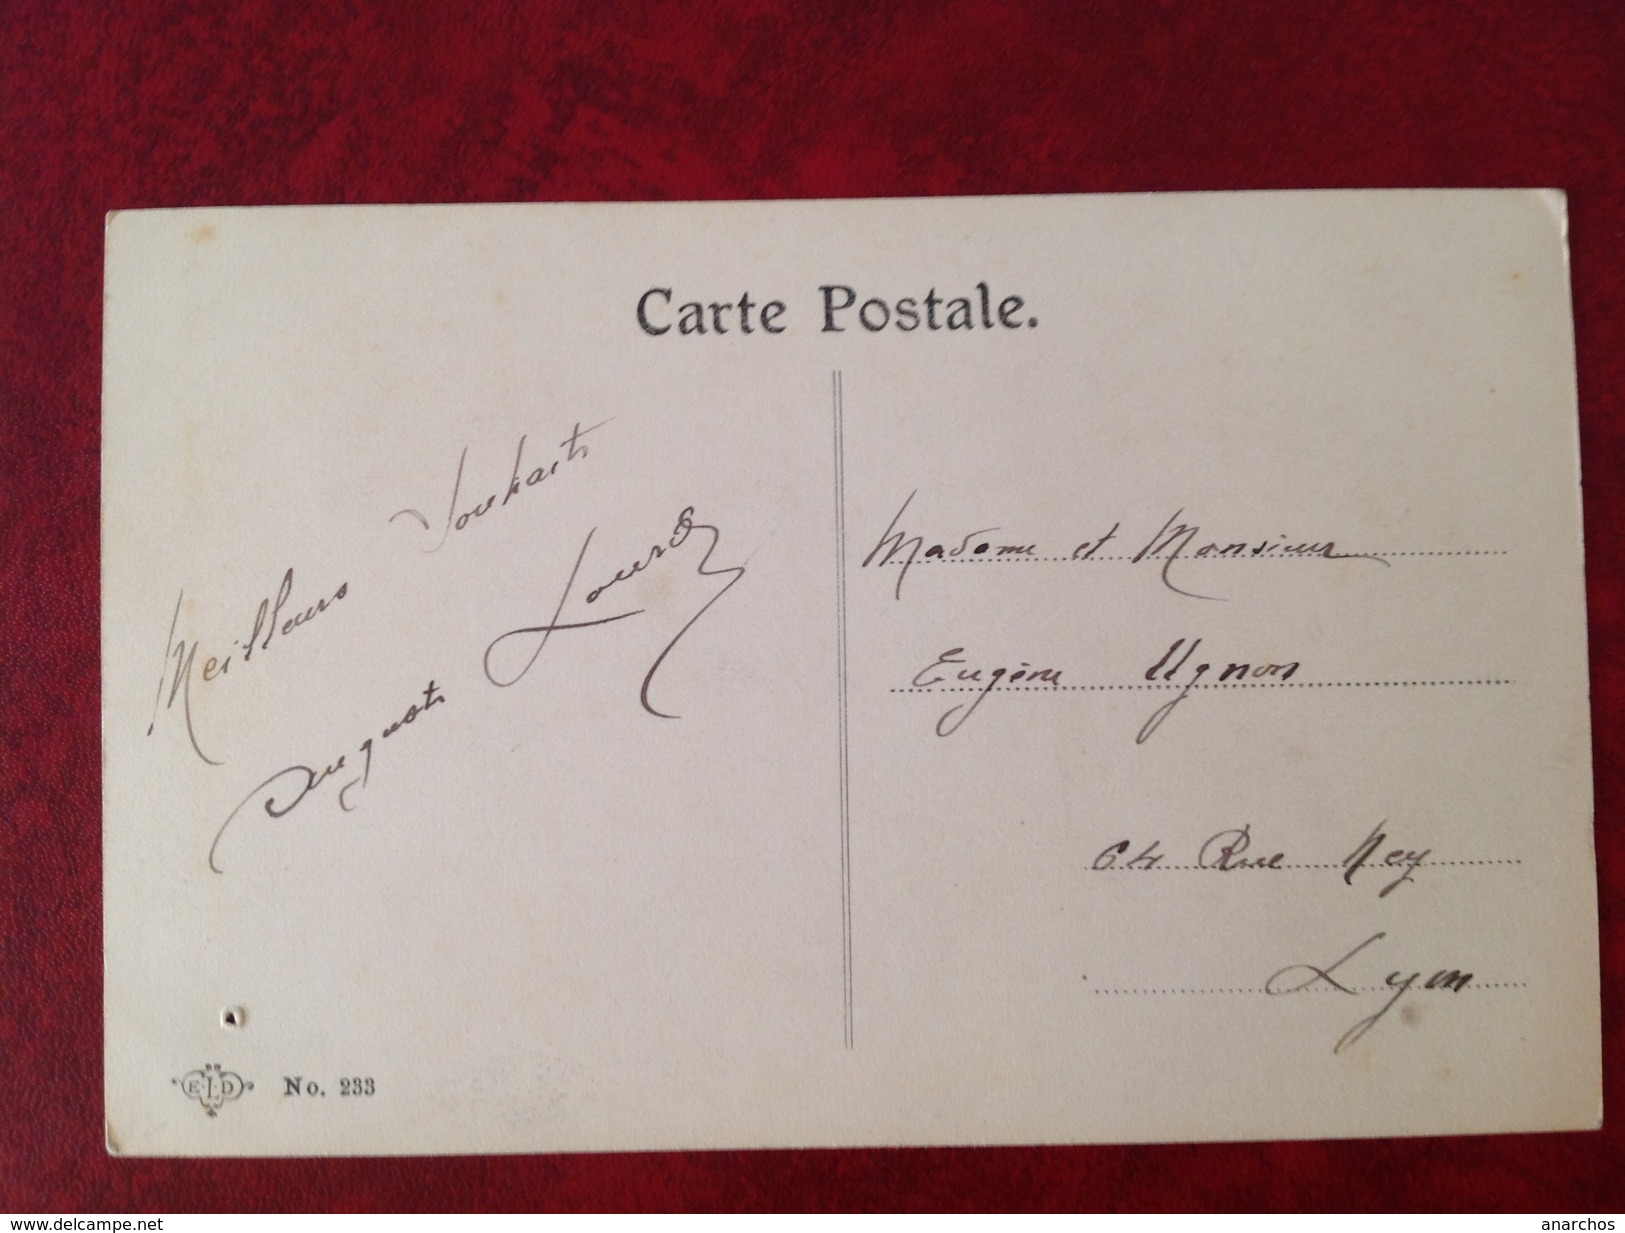 Carte Postale.
Meilleurs Souhaits
Madame et Monsieur
Eugène Ugnon
64 Rue Ney
Lyon
E.L.D
No. 233
www.delcampe.net
anarchos